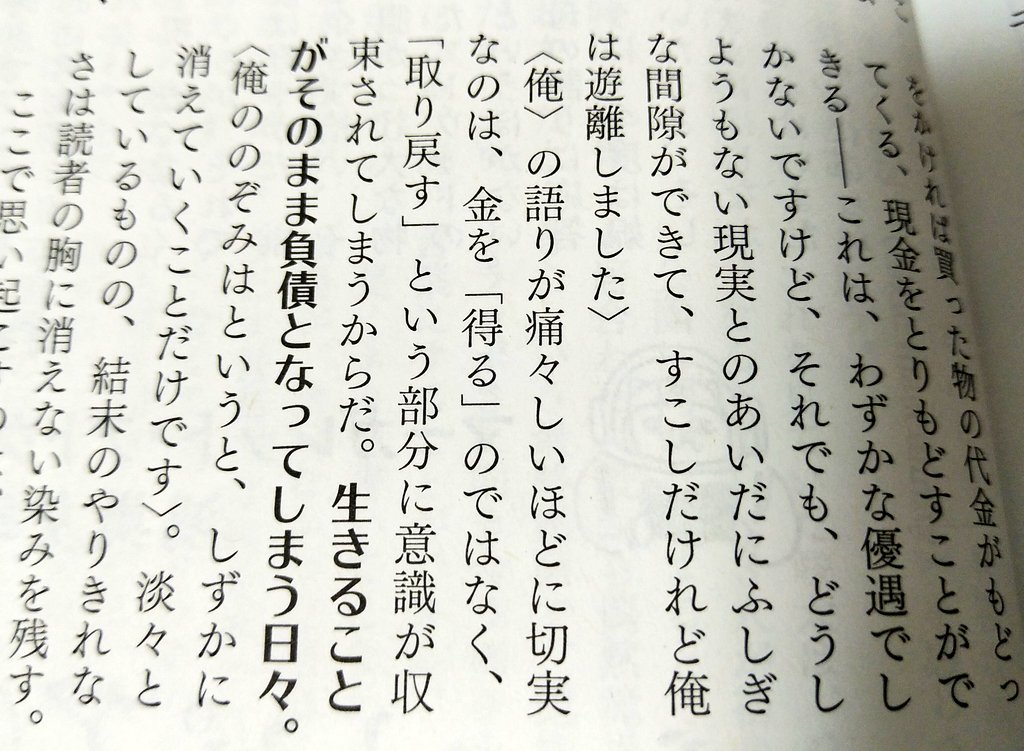 をかければ買った物の代金がもどっ
てくる、現金をとりもどすことがで
きる――これは、わずかな優遇でし
かないですけど、それでも、どうし
ようもない現実とのあいだにふしぎ
な間隙ができて、すこしだけれど俺
は遊離しました〉
〈俺〉の語りが痛々しいほどに切実
なのは、金を「得る」のではなく、
「取り戻す」という部分に意識が収
束されてしまうからだ。生きること
がそのまま負債となってしまう日々。
〈俺ののぞみはというと、しずかに
消えていくことだけです〉。淡々と
しているものの、結末のやりきれな
さは読者の胸に消えない染みを残す。
ここで思い起こすのは